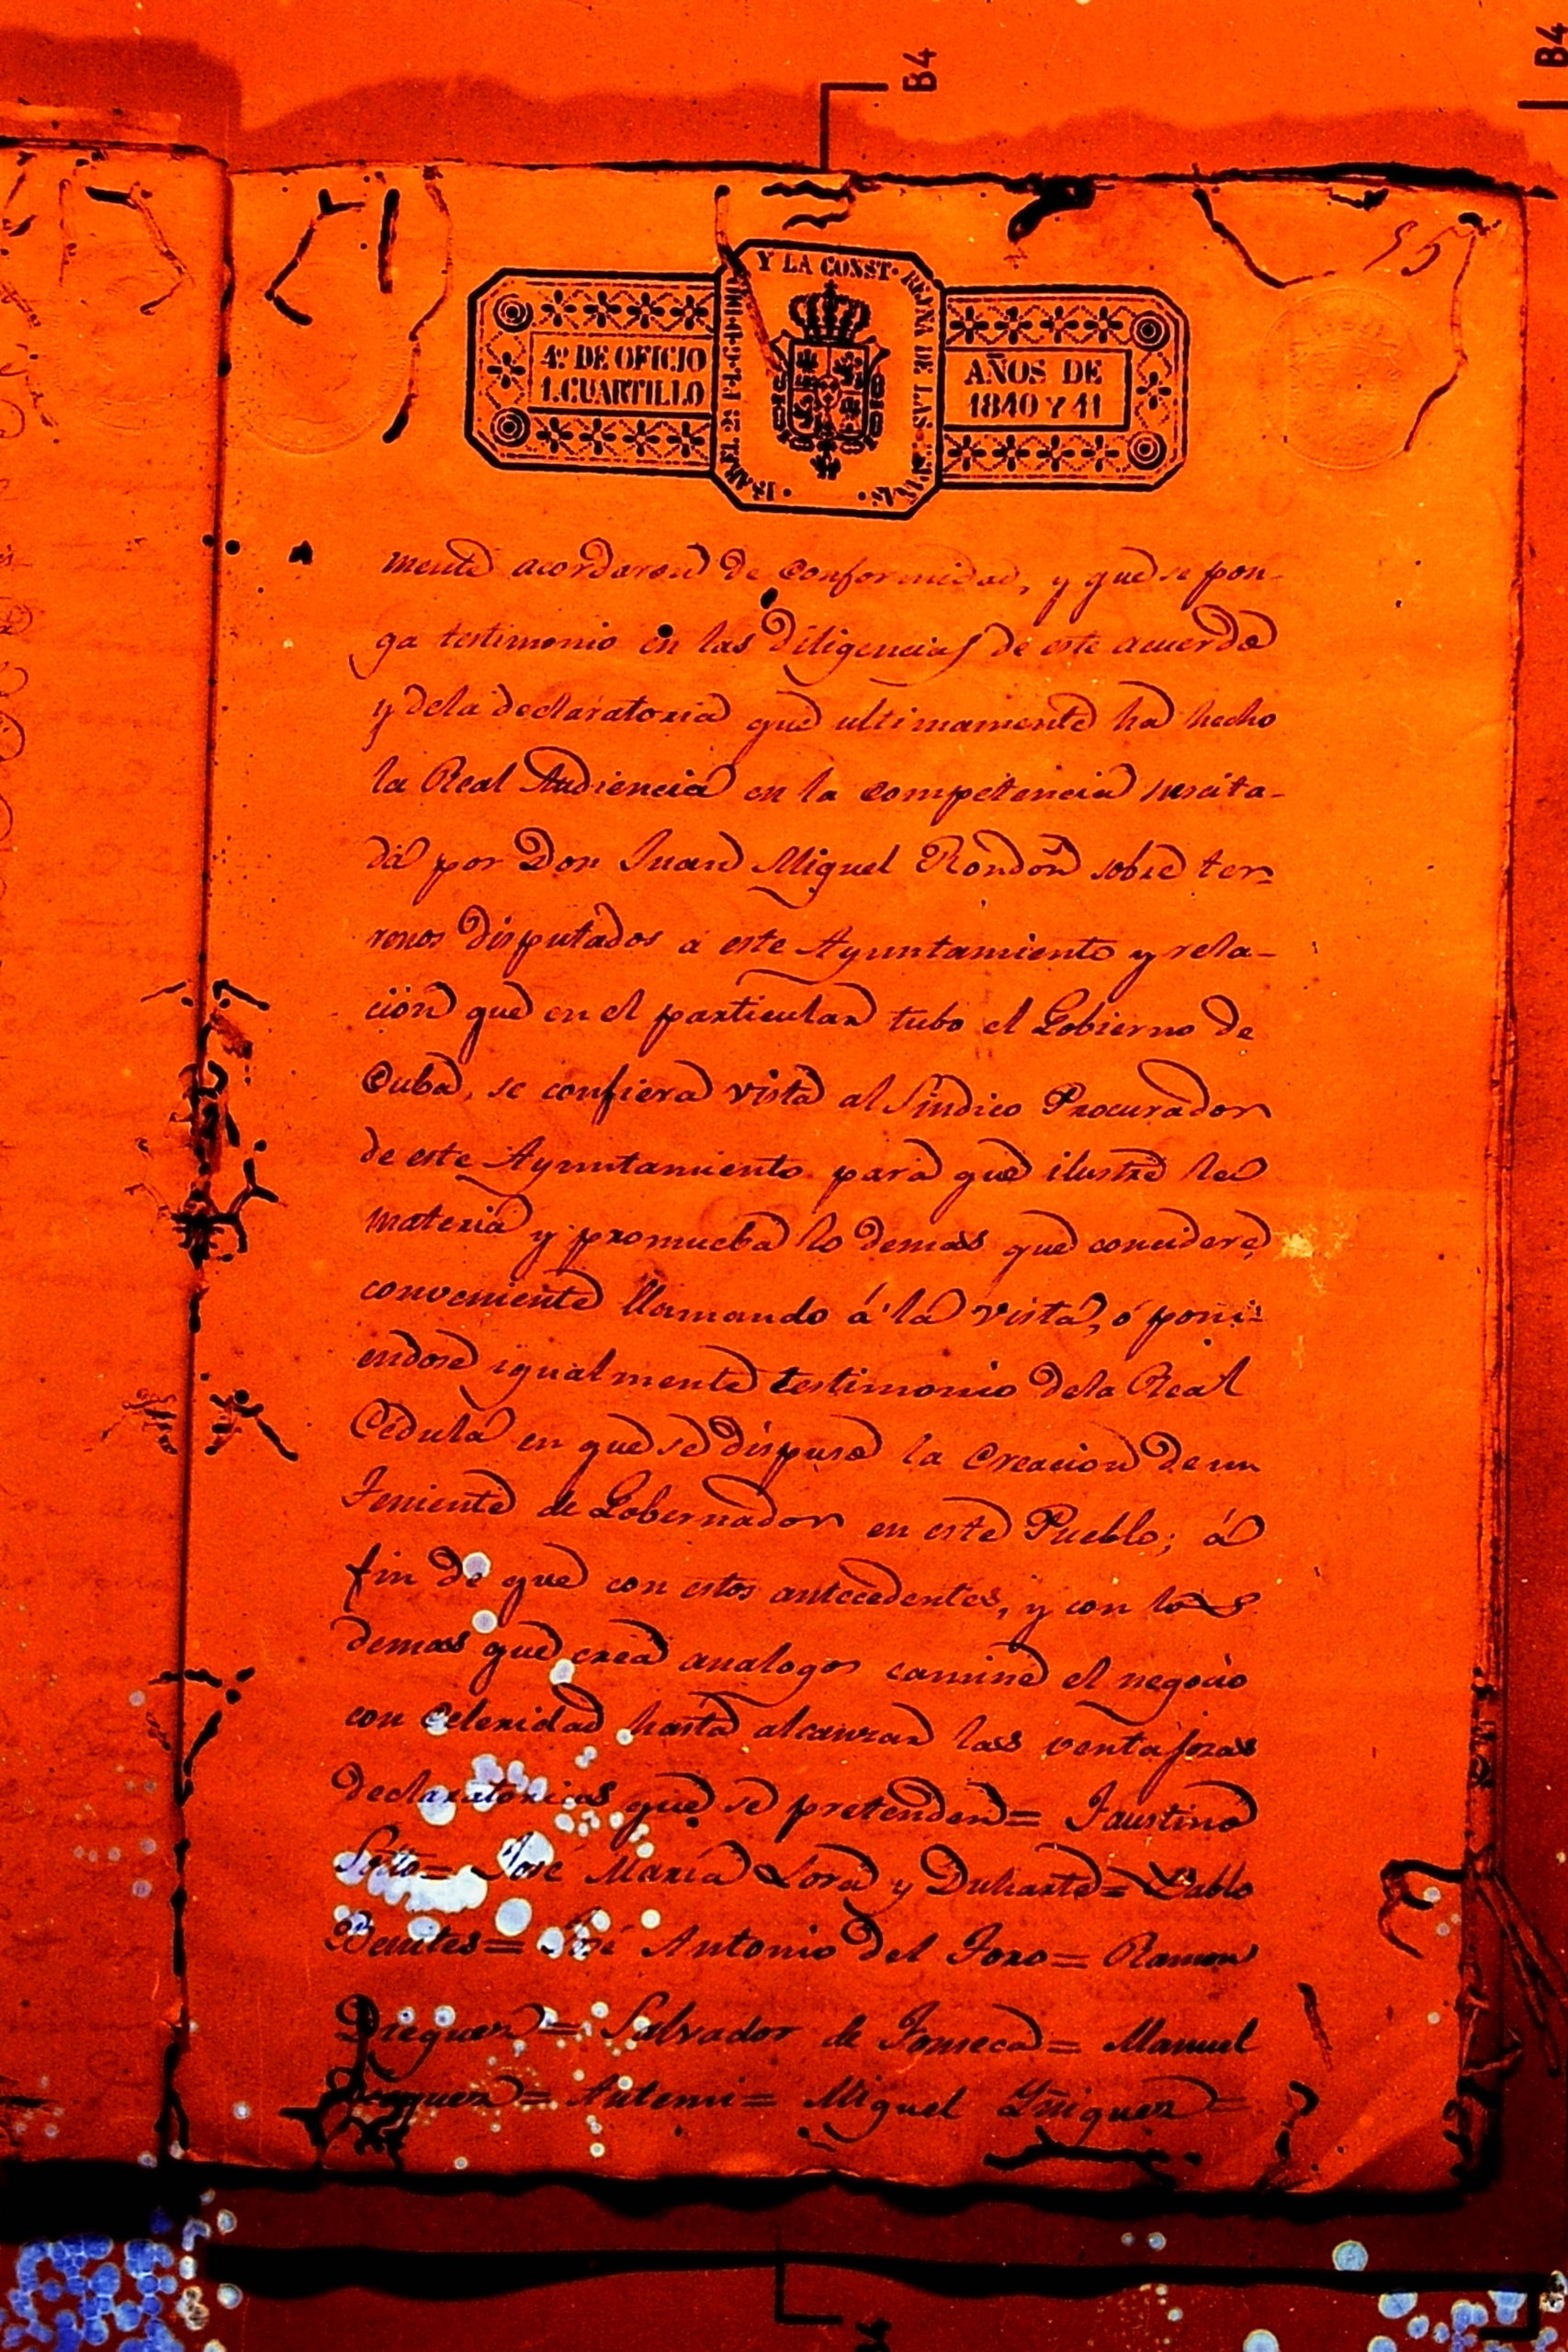 B4
B4
95
ISABEL 2ª P.L.G. DE DIOS Y LA CONST. REJNA DE LAS ESPAÑAS
4º DE OFICIO
1. CUARTILLO
AÑOS DE
1840 Y 41
mente acordaron de conformidad, y que se pon-
ga testimonio en las diligencias de este acuerdo
y dela declaratoria que ultimamente ha hecho
la Real Audiencia en la competencia sucita-
da por Don Juan Miguel Rondon sobre ter-
renos disputados a este Ayuntamiento y rela-
ción que en el particular tubo el Gobierno de
Cuba, se confiera vista al Sindico Procurador
de este Ayuntamiento para que ilustre la
materia y promueba lo demas que concidere
conveniente llamando á la vista, ó poni-
endose igualmente testimonio dela Real
Cédula en que se dispuso la Creacion de un
Teniente de Gobernador en este Pueblo; á
fin de que con estos antecedentes, y con los
demas que crea analogos camine el negocio
con celeridad hasta alcanzar las ventajosas
declaratorias que se pretenden= Faustino
Sotto= José María Lora y Duharte= Pablo
Benites= José Antonio del Toro= Ramon
Dieguez= Salvador de Fonseca= Manuel
= Antemi= Miguel Yñiguez=